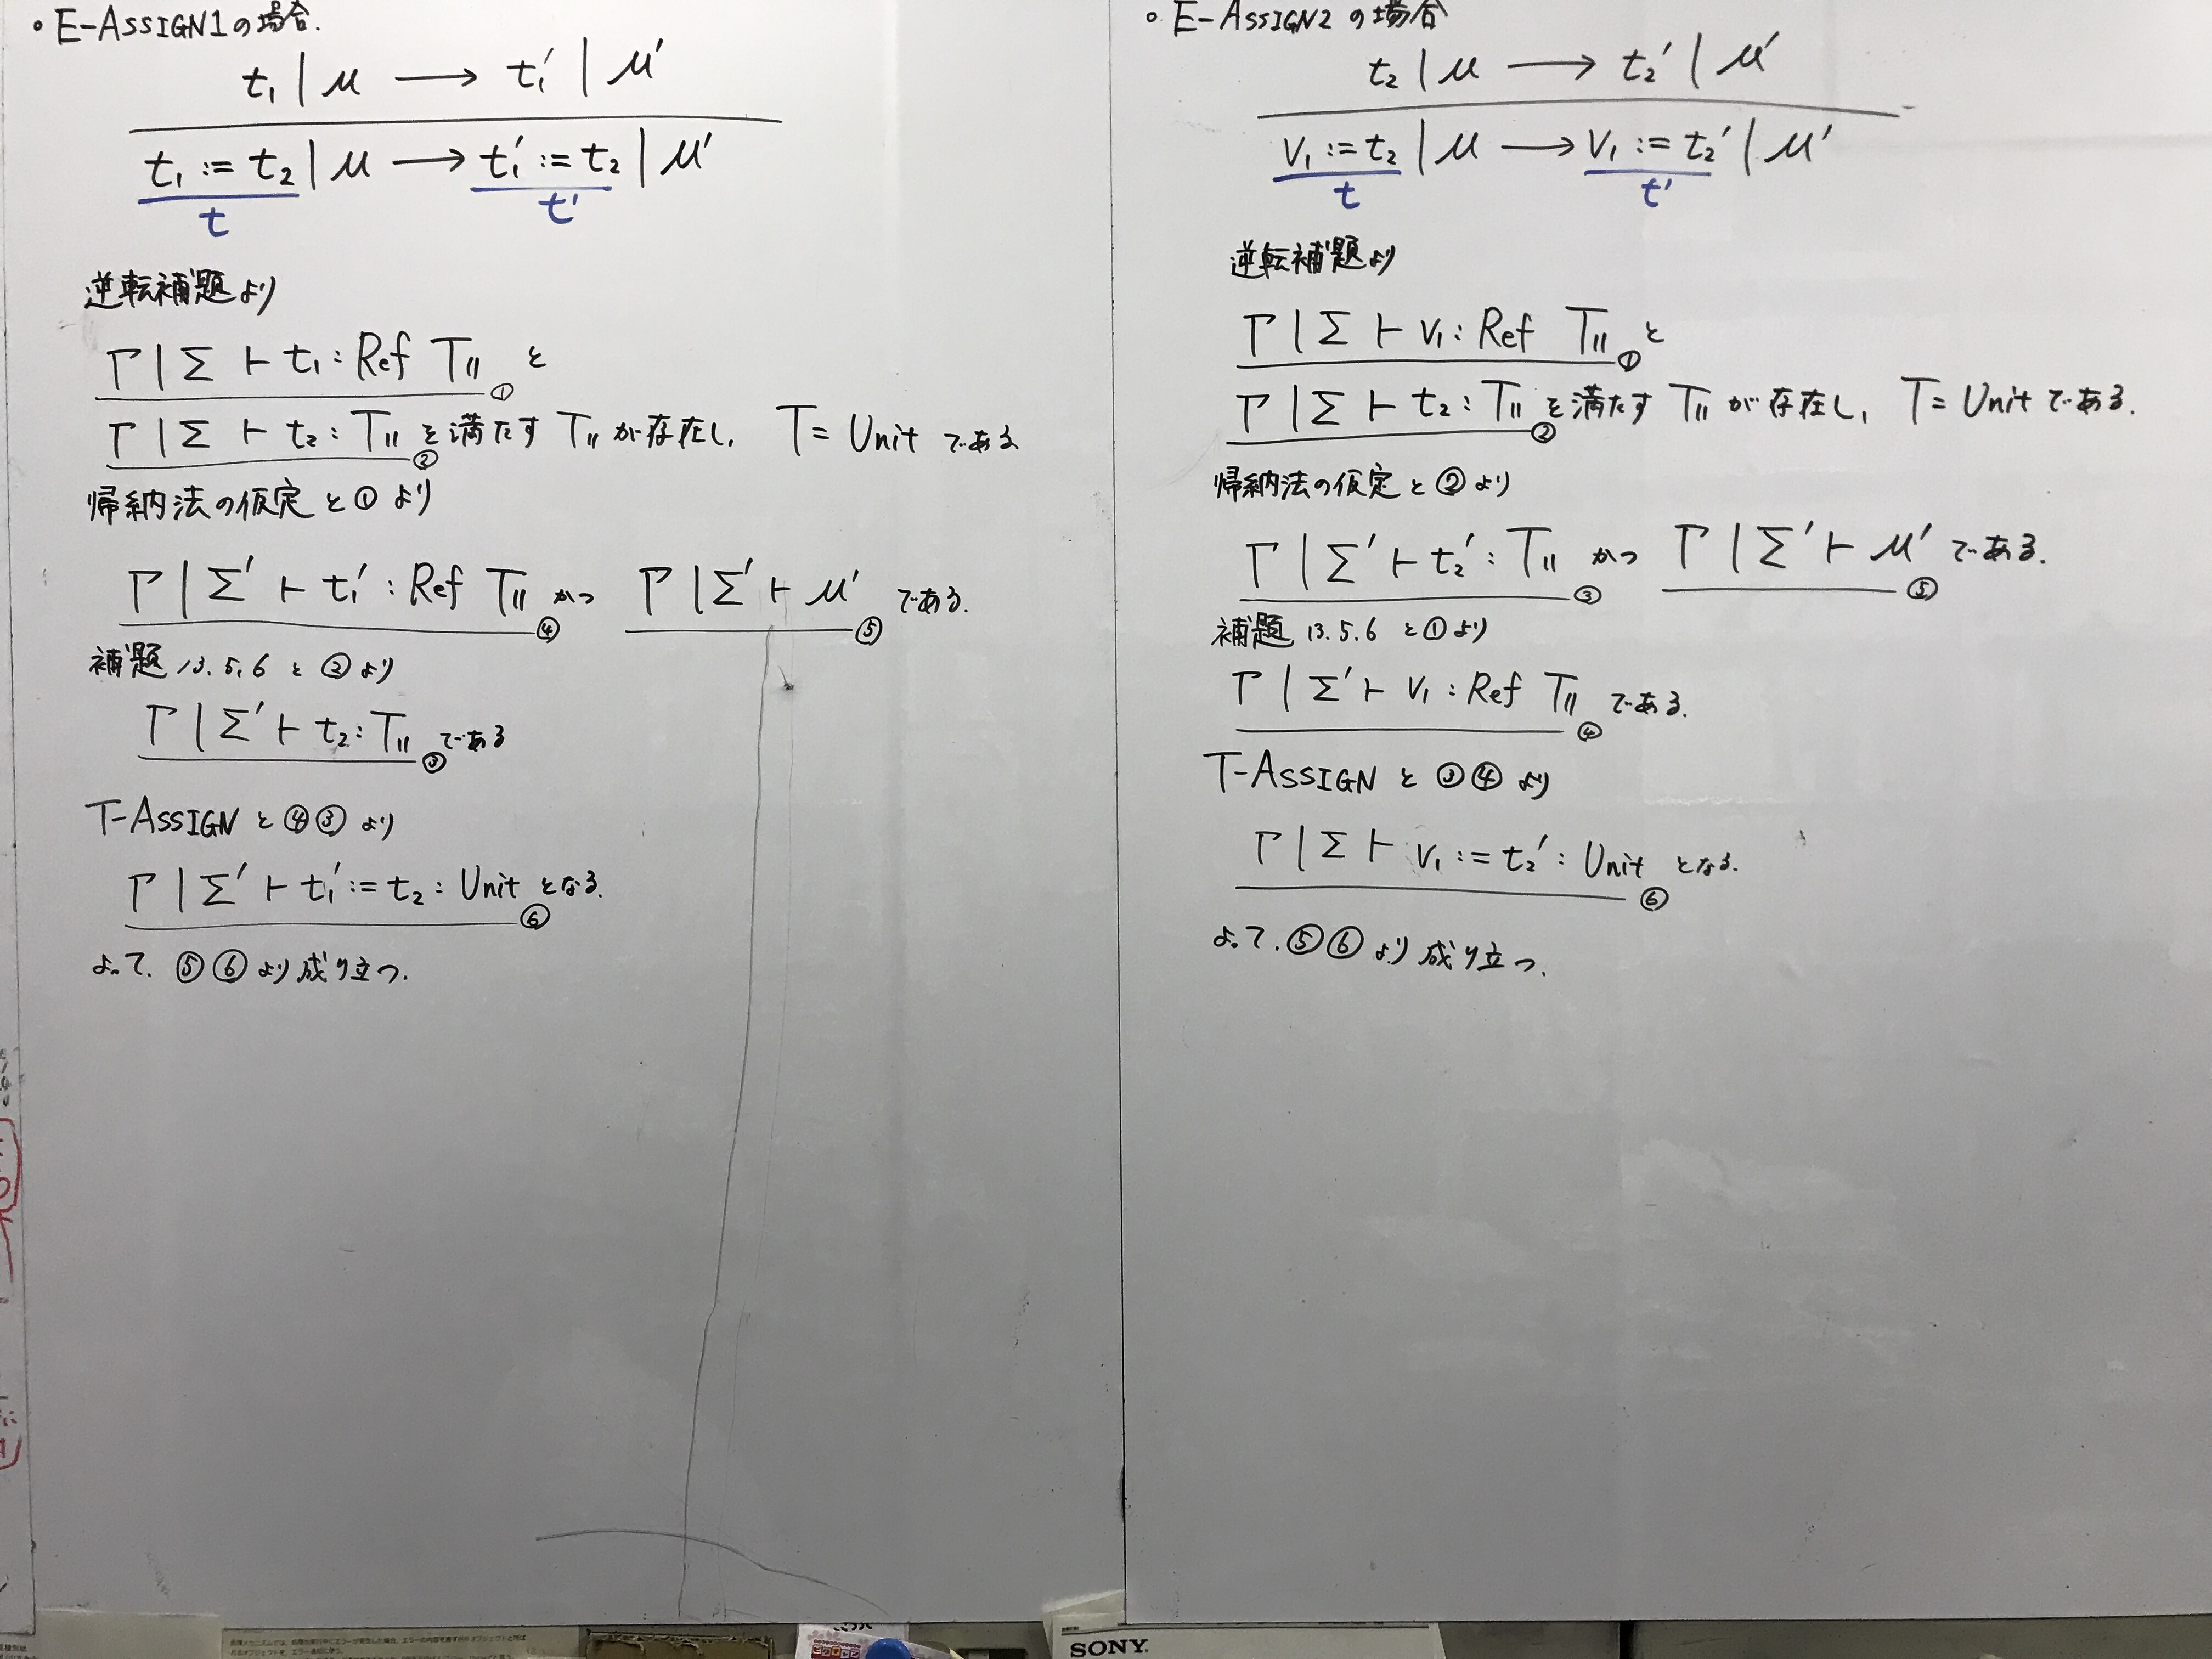 • E-ASSIGN1の場合.
t₁ | μ ⟶ t₁′ | μ′
t₁ := t₂ | μ ⟶ t₁′ := t₂ | μ′
t t′
逆転補題より
Γ | Σ ⊢ t₁ : Ref T₁₁ ① と
Γ | Σ ⊢ t₂ : T₁₁ ② を満たす T₁₁ が存在し, T = Unit である
帰納法の仮定と①より
Γ | Σ′ ⊢ t₁′ : Ref T₁₁ ④ かつ Γ | Σ′ ⊢ μ′ ⑤ である.
補題 13.5.6 と ② より
Γ | Σ′ ⊢ t₂ : T₁₁ ③ である
T-ASSIGN と ④③ より
Γ | Σ′ ⊢ t₁′ := t₂ : Unit ⑥ となる.
よって. ⑤⑥より成り立つ.
• E-ASSIGN2 の場合
t₂ | μ ⟶ t₂′ | μ′
v₁ := t₂ | μ ⟶ v₁ := t₂′ | μ′
t t′
逆転補題より
Γ | Σ ⊢ v₁ : Ref T₁₁ ① と
Γ | Σ ⊢ t₂ : T₁₁ ② を満たす T₁₁ が存在し, T = Unit である.
帰納法の仮定と②より
Γ | Σ′ ⊢ t₂′ : T₁₁ ③ かつ Γ | Σ′ ⊢ μ′ ⑤ である.
補題 13.5.6 と①より
Γ | Σ′ ⊢ v₁ : Ref T₁₁ ④ である.
T-ASSIGN と ③④ より
Γ | Σ ⊢ v₁ := t₂′ : Unit ⑥ となる.
よって. ⑤⑥より成り立つ.
SONY